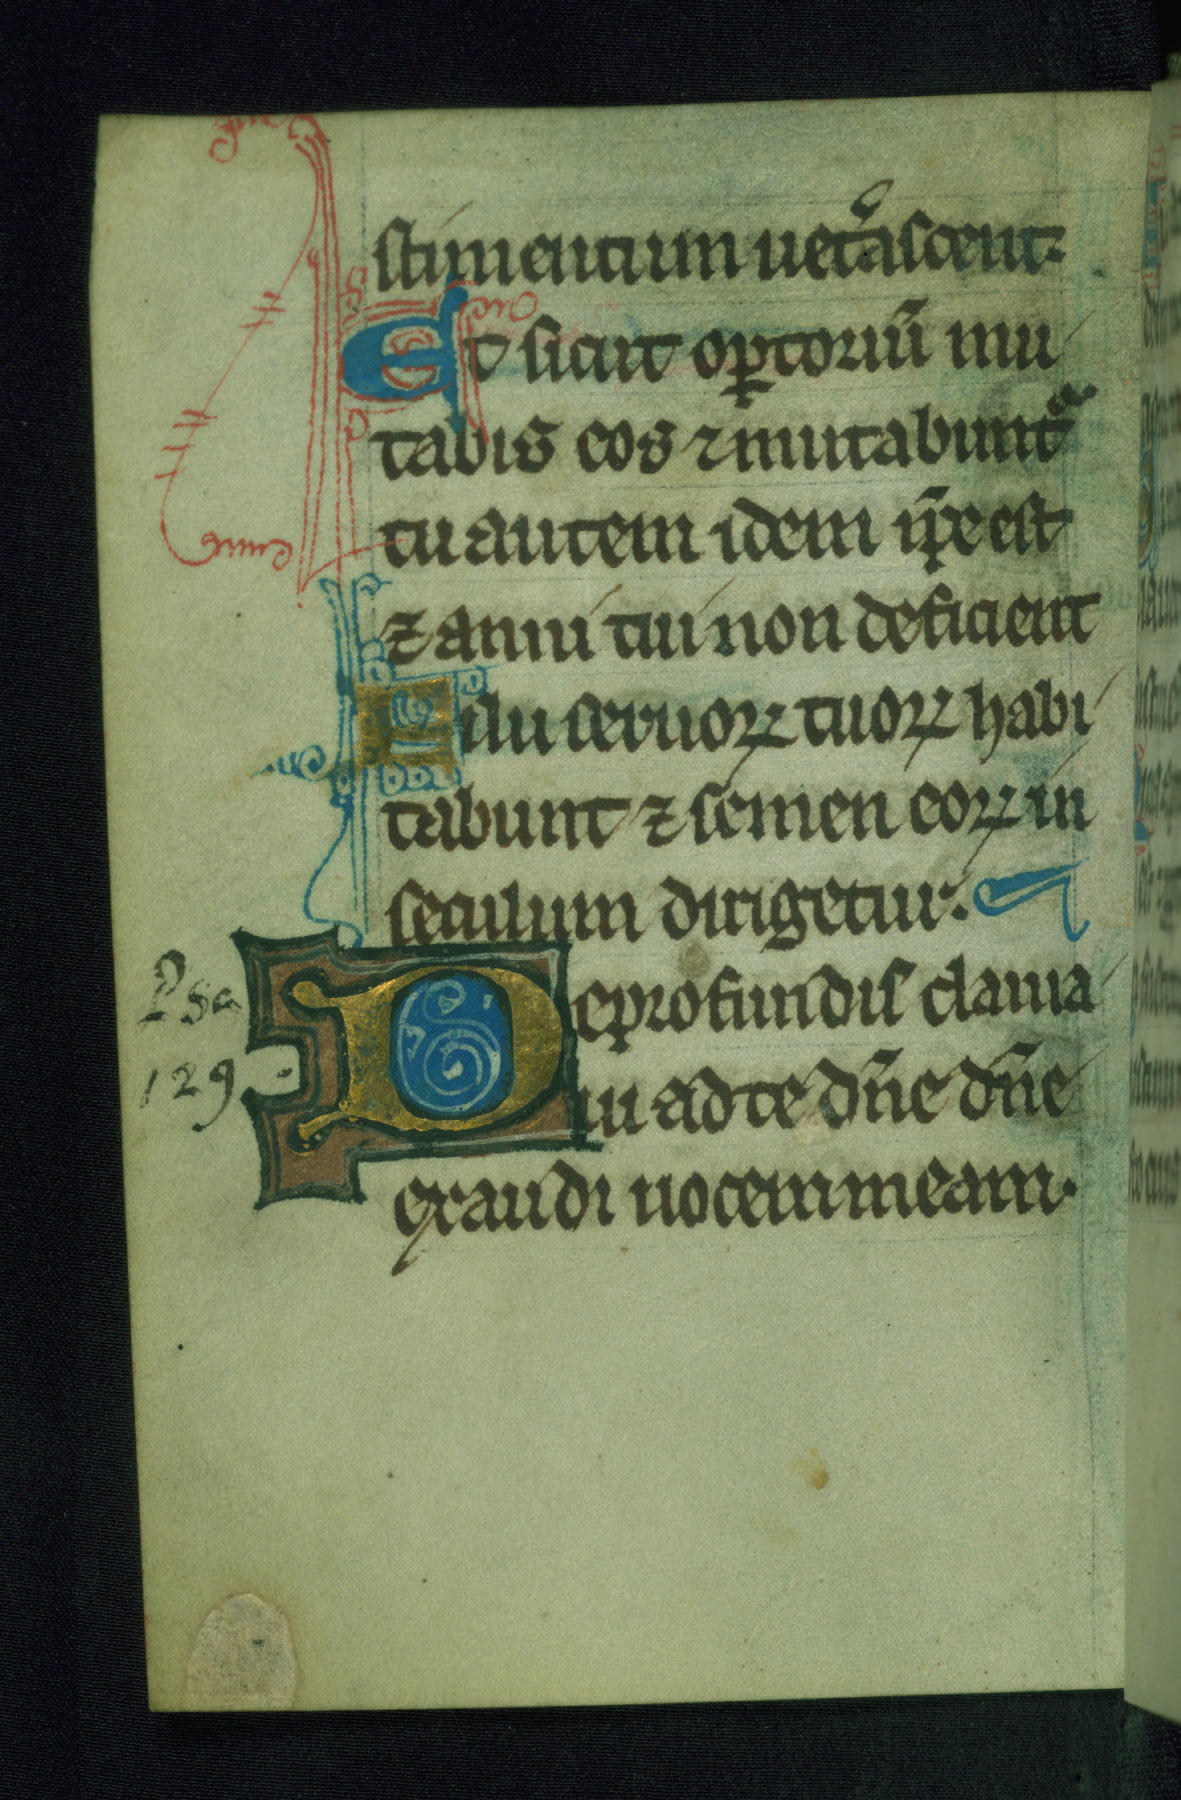 stimentum uet͛ascent
Et sicut oꝑtoriū mu
tabis eos ⁊ mutabuntᷣ
tu autem idem ip̄e est
⁊ anni tui non deficient
Filii seruoꝝ tuoꝝ habi
tabunt ⁊ semen eoꝝ in
seculum dirigetur.
De profundis clama
Psa
ui ad te dn̄e dn̄e
129
exaudi uocem meam.